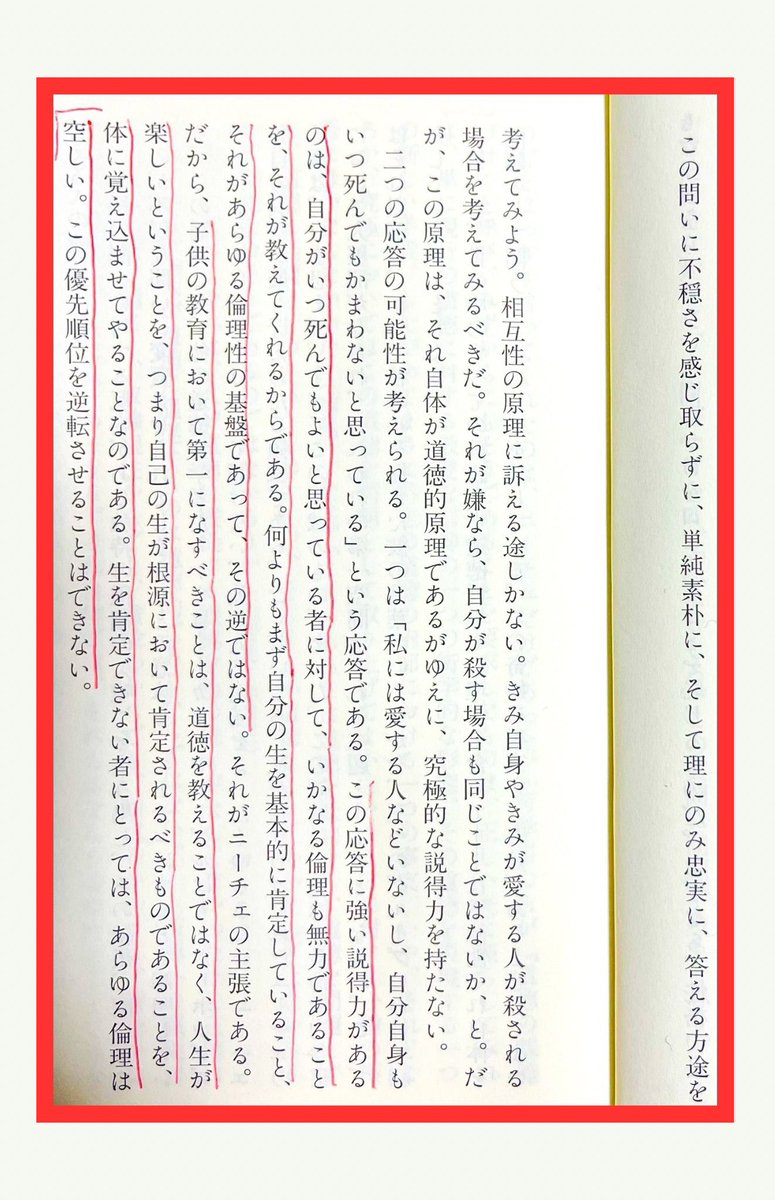 この問いに不穏さを感じ取らずに、単純素朴に、そして理にのみ忠実に、答える方途を
考えてみよう。相互性の原理に訴える途しかない。きみ自身やきみが愛する人が殺される
場合を考えてみるべきだ。それが嫌なら、自分が殺す場合も同じことではないか、と。だ
が、この原理は、それ自体が道徳的原理であるがゆえに、究極的な説得力を持たない。
二つの応答の可能性が考えられる。一つは「私には愛する人などいないし、自分自身も
いつ死んでもかまわないと思っている」という応答である。この応答に強い説得力がある
のは、自分がいつ死んでもよいと思っている者に対して、いかなる倫理も無力であること
を、それが教えてくれるからである。何よりもまず自分の生を基本的に肯定していること、
それがあらゆる倫理性の基盤であって、その逆ではない。それがニーチェの主張である。
だから、子供の教育において第一になすべきことは、道徳を教えることではなく、人生が
楽しいということを、つまり自己の生が根源において肯定されるべきものであることを、
体に覚え込ませてやることなのである。生を肯定できない者にとっては、あらゆる倫理は
空しい。この優先順位を逆転させることはできない。